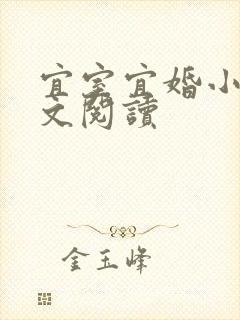 宜室宜婚小
文閱讀
金玉峰